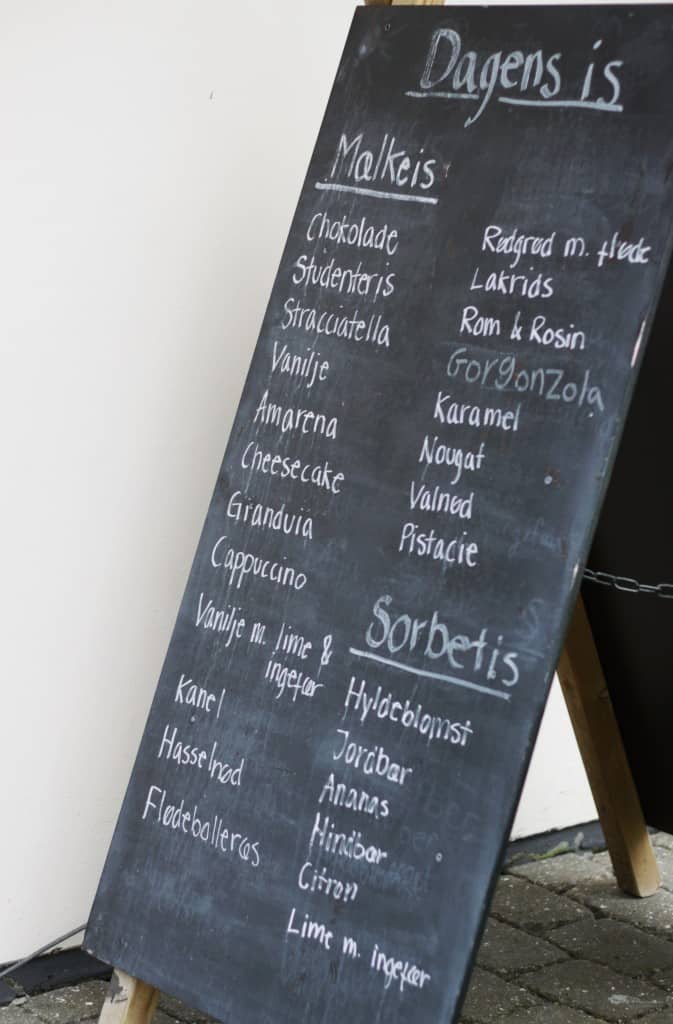 Dagens is
Mælkeis
Chokolade
Studenteris
Stracciatella
Vanilje
Amarena
Cheesecake
Granduia
Cappuccino
Vanilje m. lime &
ingefær
Kanel
Hasselnød
Flødebolleræs
Rødgrød m. fløde
Lakrids
Rom & Rosin
Gorgonzola
Karamel
Nougat
Valnød
Pistacie
Sorbetis
Hyldeblomst
Jordbær
Ananas
Hindbær
Citron
Lime m. ingefær